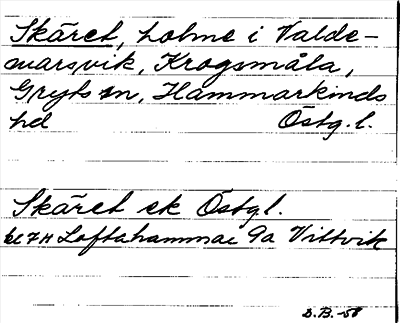 Skäret, holme i Valde-
marsvik, Krogsmåla,
Gryts sn, Hammarkinds
hd Östg. l.
Skäret ek Östgl.
bl 7H Loftahammar 9a Vittvik
D.B. -58